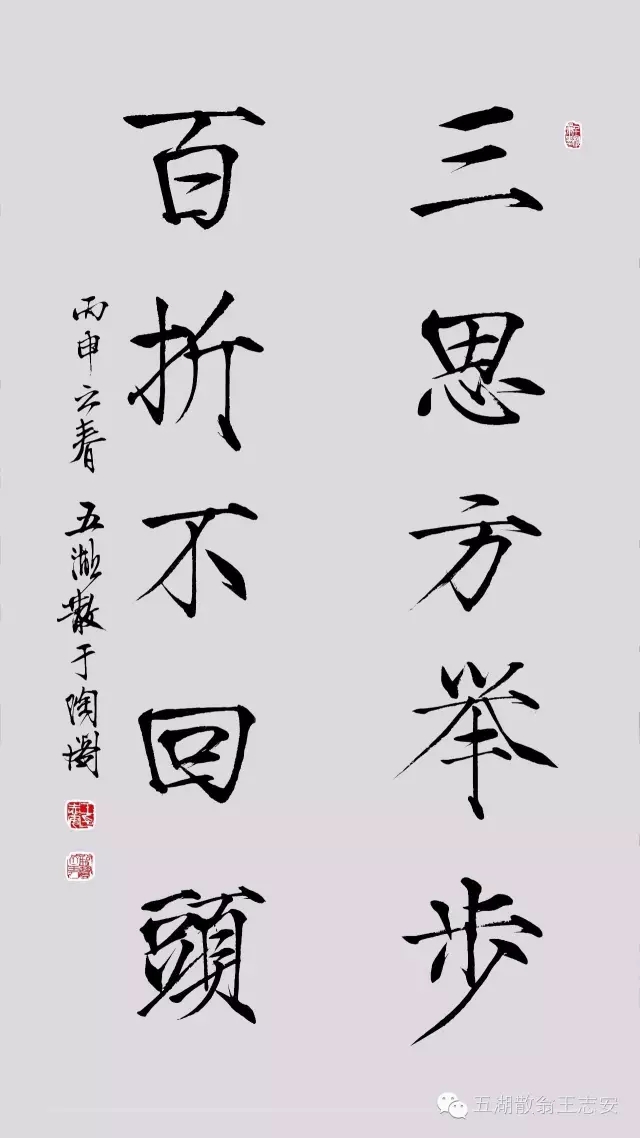 三思方举步
百折不回頭
丙申立春 五湖散于陶
五湖散翁王志安